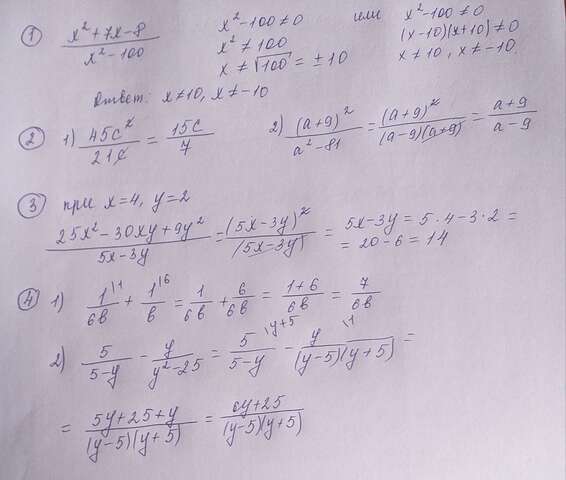 ① (x² + 7x - 8)/(x² - 100) x² - 100 ≠ 0 или x² - 100 ≠ 0
x² ≠ 100 (x - 10)(x + 10) ≠ 0
x ≠ √100 = ± 10 x ≠ 10, x ≠ -10.
Ответ: x ≠ 10, x ≠ -10
② 1) 45c²/21c = 15c/7 2) (a+9)²/(a² - 81) = (a+9)²/((a-9)(a+9)) = (a+9)/(a-9)
③ при x=4, y=2
(25x² - 30xy + 9y²)/(5x-3y) = (5x-3y)²/(5x-3y) = 5x-3y = 5·4-3·2 =
= 20-6 = 14
④ 1) 1\1/6в + 1\6/в = 1/6в + 6/6в = (1+6)/6в = 7/6в
2) 5/(5-y) - y/(y²-25) = 5\y+5/(5-y) - y\1/((y-5)(y+5)) =
= (5y+25+y)/((y-5)(y+5)) = (6y+25)/((y-5)(y+5))